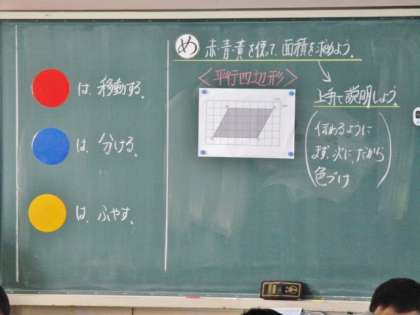 は、移動する。
は、分ける。
は、ふやす。
め 赤青黄を使って、面積を求めよう。
<平行四辺形>
上手に説明しよう
伝わるように
まず、次に、だから
色づけ